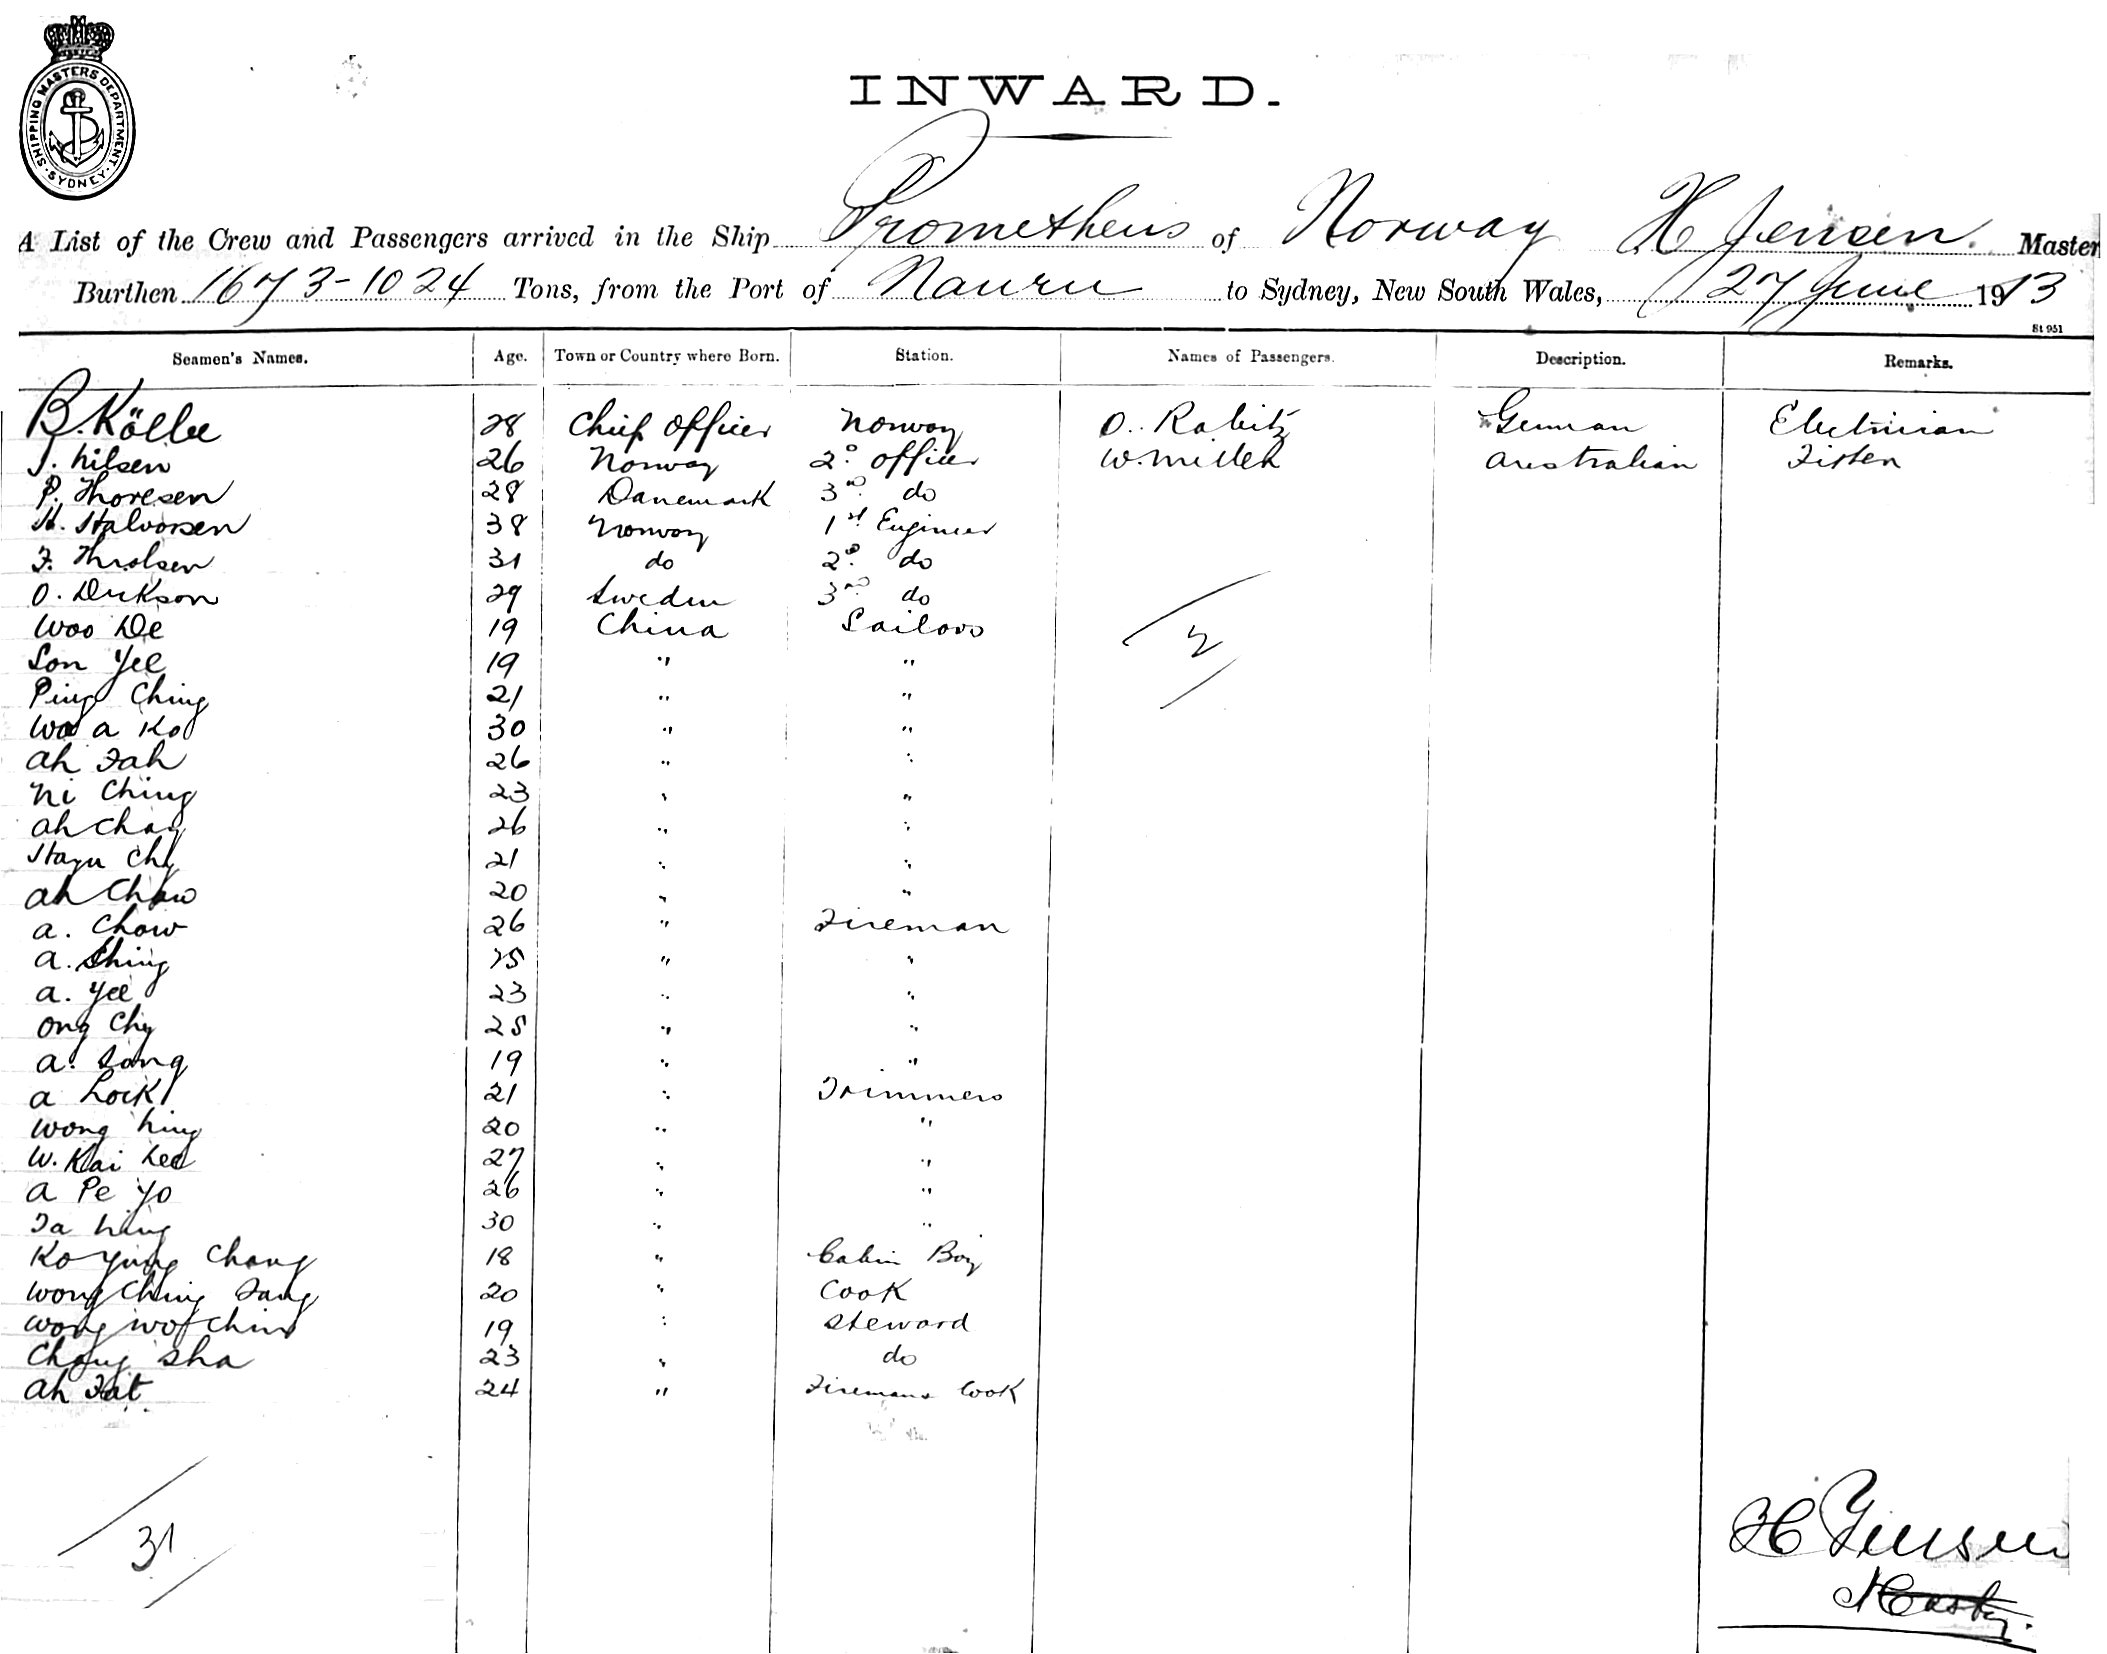 SHIPPING MASTERS DEPARTMENT · SYDNEY ·
INWARD.
A List of the Crew and Passengers arrived in the Ship Prometheus of Norway H Jensen. Master
Burthen 1673-1024 Tons, from the Port of Nauru to Sydney, New South Wales, 27 June 1913
St 951
Seamen's Names. Age. Town or Country where Born. Station. Names of Passengers. Description. Remarks.
B. Kölbe 28 Chief Officer Norway O. Rabitz German Electrician
J. Nilsen 26 Norway 2d officer W. Miller Australian Fitter
P. Thoresen 28 Danemark 3rd do
H. Halvorsen 38 Norway 1st Engineer
F. 31 do 2d do
O. 29 Sweden 3rd do
Woo De 19 China Sailors
Son Yee 19 " "
Ping Ching 21 " "
Wo a Ko 30 " "
Ah Fah 26 " "
Ni Ching 23 " "
Ah Chay 26 " "
21 " "
Ah Chow 20 " "
A. Chow 26 " Fireman
A. Shing 25 " "
A. Yee 23 " "
Ong Chy 25 " "
A. Song 19 " "
A Lock 21 " Trimmers
Wong Ning 20 " "
W. Kai Lee 27 " "
A Pe Yo 26 " "
Ta Ning 30 " "
Ko Yung Chang 18 " Cabin Boy
Wong Ching Fang 20 " Cook
Wong Wo Ching 19 " Steward
Chang Sha 23 " do
Ah Fat 24 " Firemans Cook
2
31
H Jensen
Master